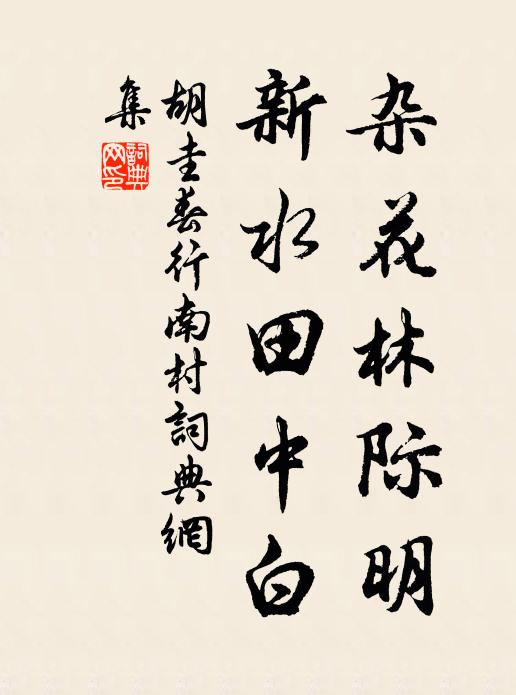 杂花林际明
新水田中白
胡圭春行南村詞典網
集
詞典
网印